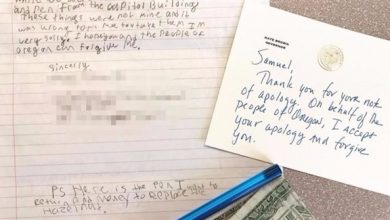 and pen from the capitol Building
These things were not mine and it
was wrong for me to take them. I'm
very sorry. I hope you and the people of
oregon can forgive me.
sincerly
PS Here is the pen I
return and money to replace the
hazelnuts.
KATE BROWN
GOVERNOR
Samuel,
Thank you for your note
of apology. On behalf of the
people of Oregon, I accept
your apology and forgive
you.